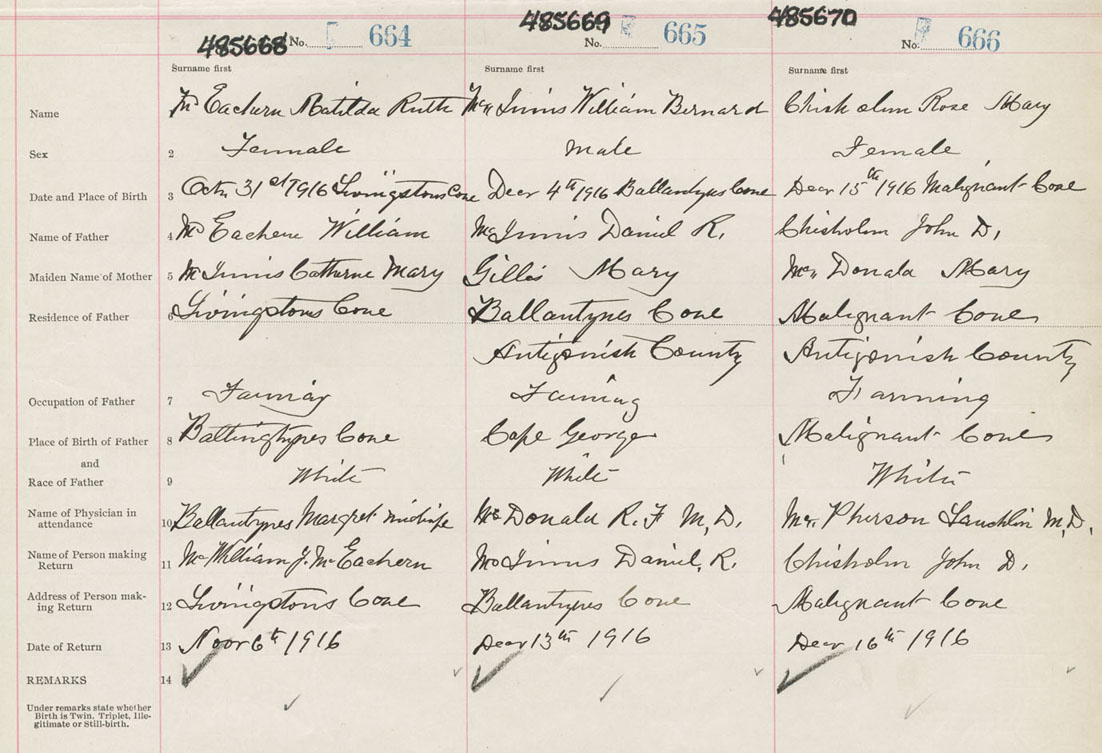 485668 No. 664 485669 No. 665 485670 No. 666
Surname first Surname first Surname first
Name Mc Eachern Matilda Ruth Mc Innis William Bernard Chisholm Rose Mary
Sex 2 Female Male Female
Date and Place of Birth 3 Octr 31st 1916 Livingstons Cove Decr 4th 1916 Ballantynes Cove Decr 15th 1916 Malignant Cove
Name of Father 4 Mc Eachern William Mc Innis Daniel R. Chisholm John D.
Maiden Name of Mother 5 Mc Innis Catherne Mary Gillis Mary Mc Donald Mary
Residence of Father 6 Livingstons Cove Ballantynes Cove Malignant Cove
Antigonish County Antigonish County
Occupation of Father 7 Farming Farming Farming
Place of Birth of Father 8 Cove Cape George Malignant Cove
and
Race of Father 9 White White White
Name of Physician in
attendance 10 Ballantynes Margret midwife Mc Donald R. F M.D. Mc Pherson Lauchlin M.D.
Name of Person making
Return 11 William J. Mc Eachern Mc Innis Daniel R. Chisholm John D.
Address of Person mak-
ing Return 12 Livingstons Cove Ballantynes Cove Malignant Cove
Date of Return 13 Novr 6th 1916 Decr 13th 1916 Decr 16th 1916
REMARKS 14
Under remarks state whether
Birth is Twin, Triplet, Ille-
gitimate or Still-birth.